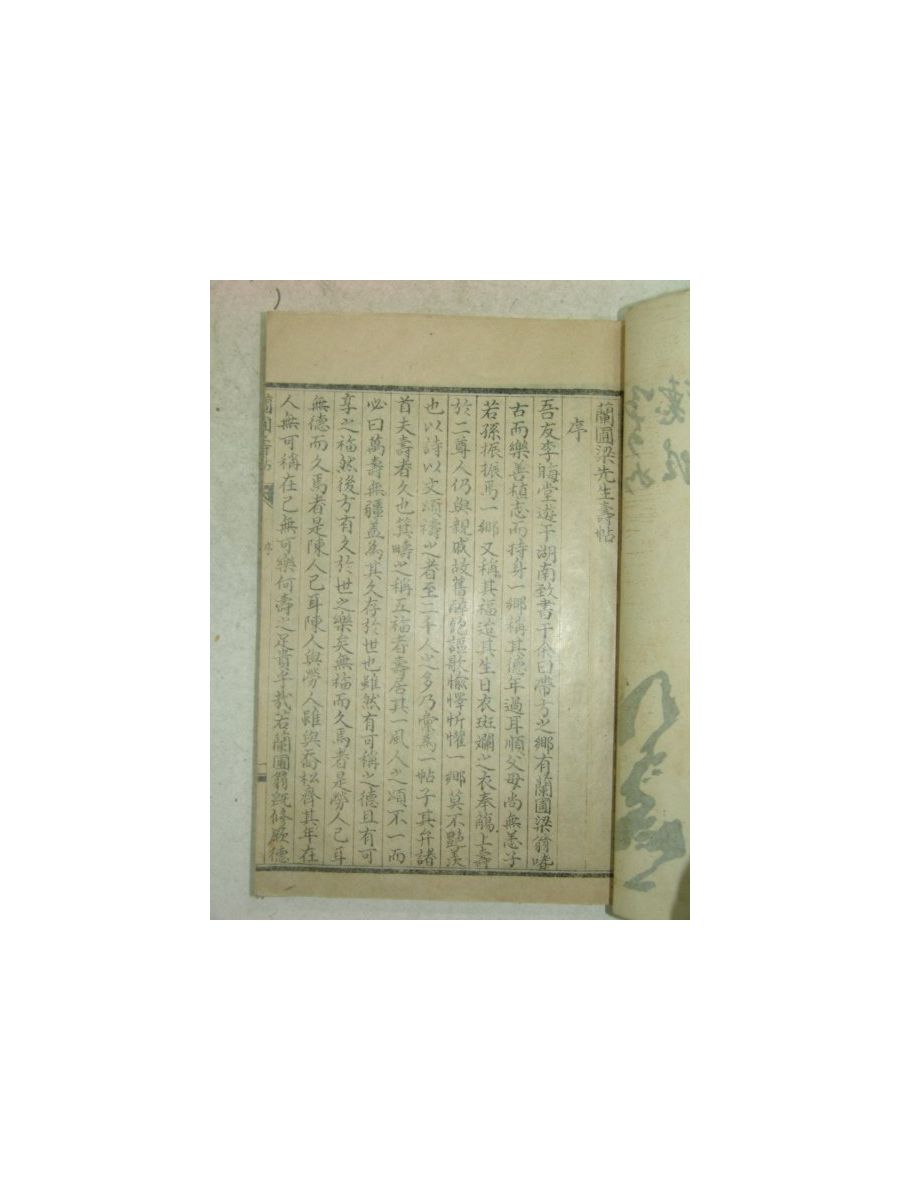 蘭圃梁先生壽帖
序
吾友李晦堂遊于湖南致書于余曰帶方之鄉有蘭圃梁翁嗜
古而樂善植志而持身一鄉稱其德年過耳順父母尚無恙子
若孫振振焉一鄉又稱其福迨其生日衣斑斕之衣奉觴上壽
於二尊人仍與親戚故舊醉飽謳歌愉懌忻懽一鄉莫不艶羡
也以詩以文頌禱之者至二千人之多乃彙為一帖子其弁諸
首夫壽者久也箕疇之稱五福者壽居其一風人之頌不一而
必曰萬壽無疆盖為其久存於世也雖然有可稱之德且有可
享之福然後方有久於世之樂矣無福而久焉者是勞人已耳
無德而久焉者是陳人已耳陳人與勞人雖與喬松齊其年在
人無可稱在己無可樂何壽之足貴乎哉若蘭圃翁旣修厥德
蘭圃壽帖
序
一